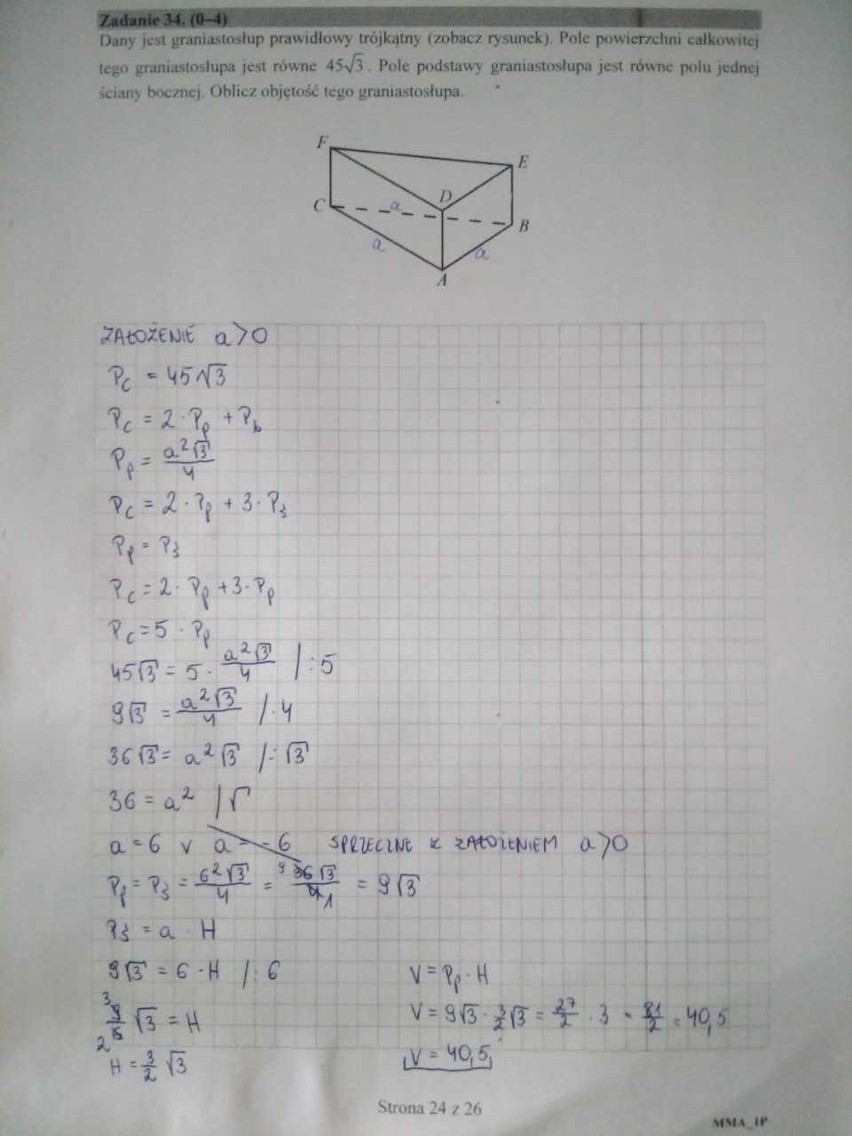 Zadanie 34. (0–4)
Dany jest graniastosłup prawidłowy trójkątny (zobacz rysunek). Pole powierzchni całkowitej
tego graniastosłupa jest równe 45√3. Pole podstawy graniastosłupa jest równe polu jednej
ściany bocznej. Oblicz objętość tego graniastosłupa.
F
E
D
C
a
B
a
a
A
ZAŁOŻENIE a>0
Pc = 45√3
Pc = 2·Pp + Pb
Pp = a²√3/4
Pc = 2·Pp + 3·Pś
Pp = Pś
Pc = 2·Pp + 3·Pp
Pc = 5·Pp
45√3 = 5· a²√3/4 /:5
9√3 = a²√3/4 /·4
36√3 = a²√3 /:√3
36 = a² /√
a = 6 v a = -6 SPRZECZNE Z ZAŁOŻENIEM a>0
Pp = Pś = 6²√3/4 = 9 36√3/4 1 = 9√3
Pś = a · H
9√3 = 6·H /:6
3 9/6 2 √3 = H
H = 3/2 √3
V = Pp · H
V = 9√3 · 3/2 √3 = 27/2 · 3 = 81/2 = 40,5
V = 40,5
Strona 24 z 26
MMA_1P